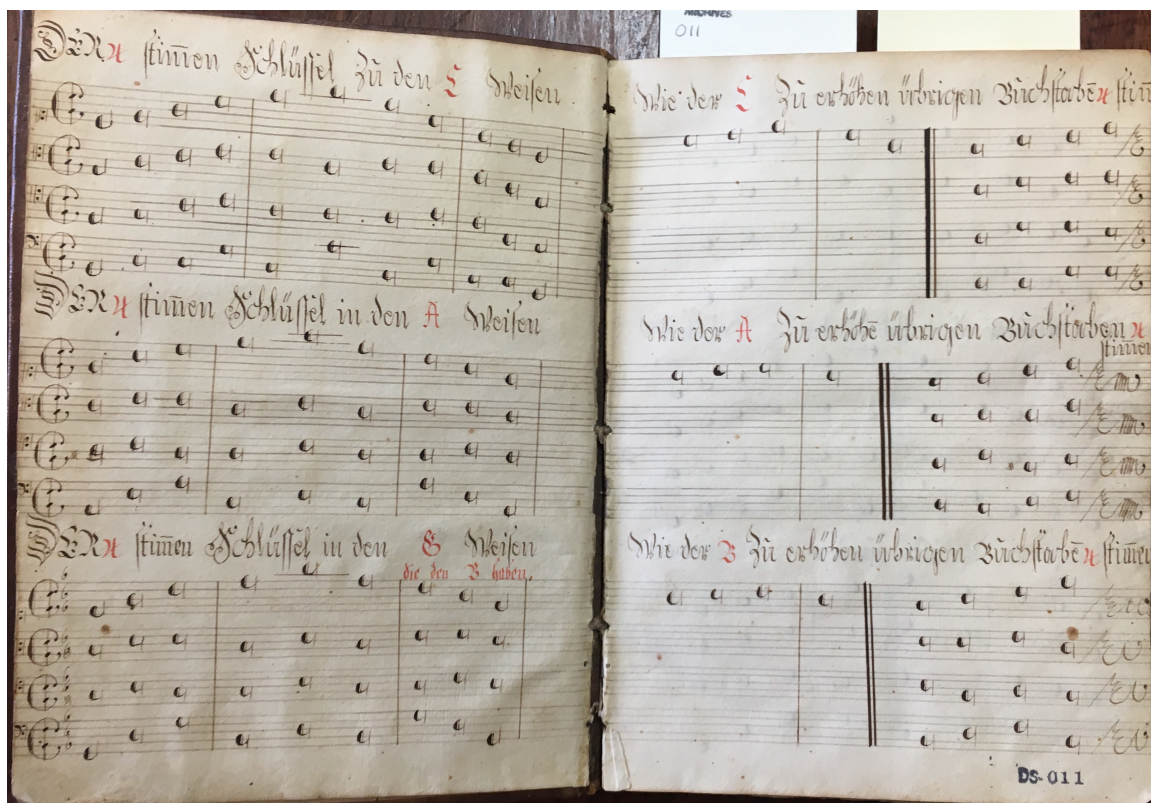 ARCHIVES
011
DER 4 stim̄en Schlüssel Zu den C Weisen
DER 4 stim̄en Schlüssel in den A Weisen
DER 4 stim̄en Schlüssel in den G Weisen
die den B haben.
Wie der C Zu erhöhen übrigen Buchstabē 4 stim̄
Wie der A Zu erhöhē übrigen Buchstaben 4
stimen
Wie der B Zu erhöhen übrigen Buchstabē 4 stim̄en
DS-011